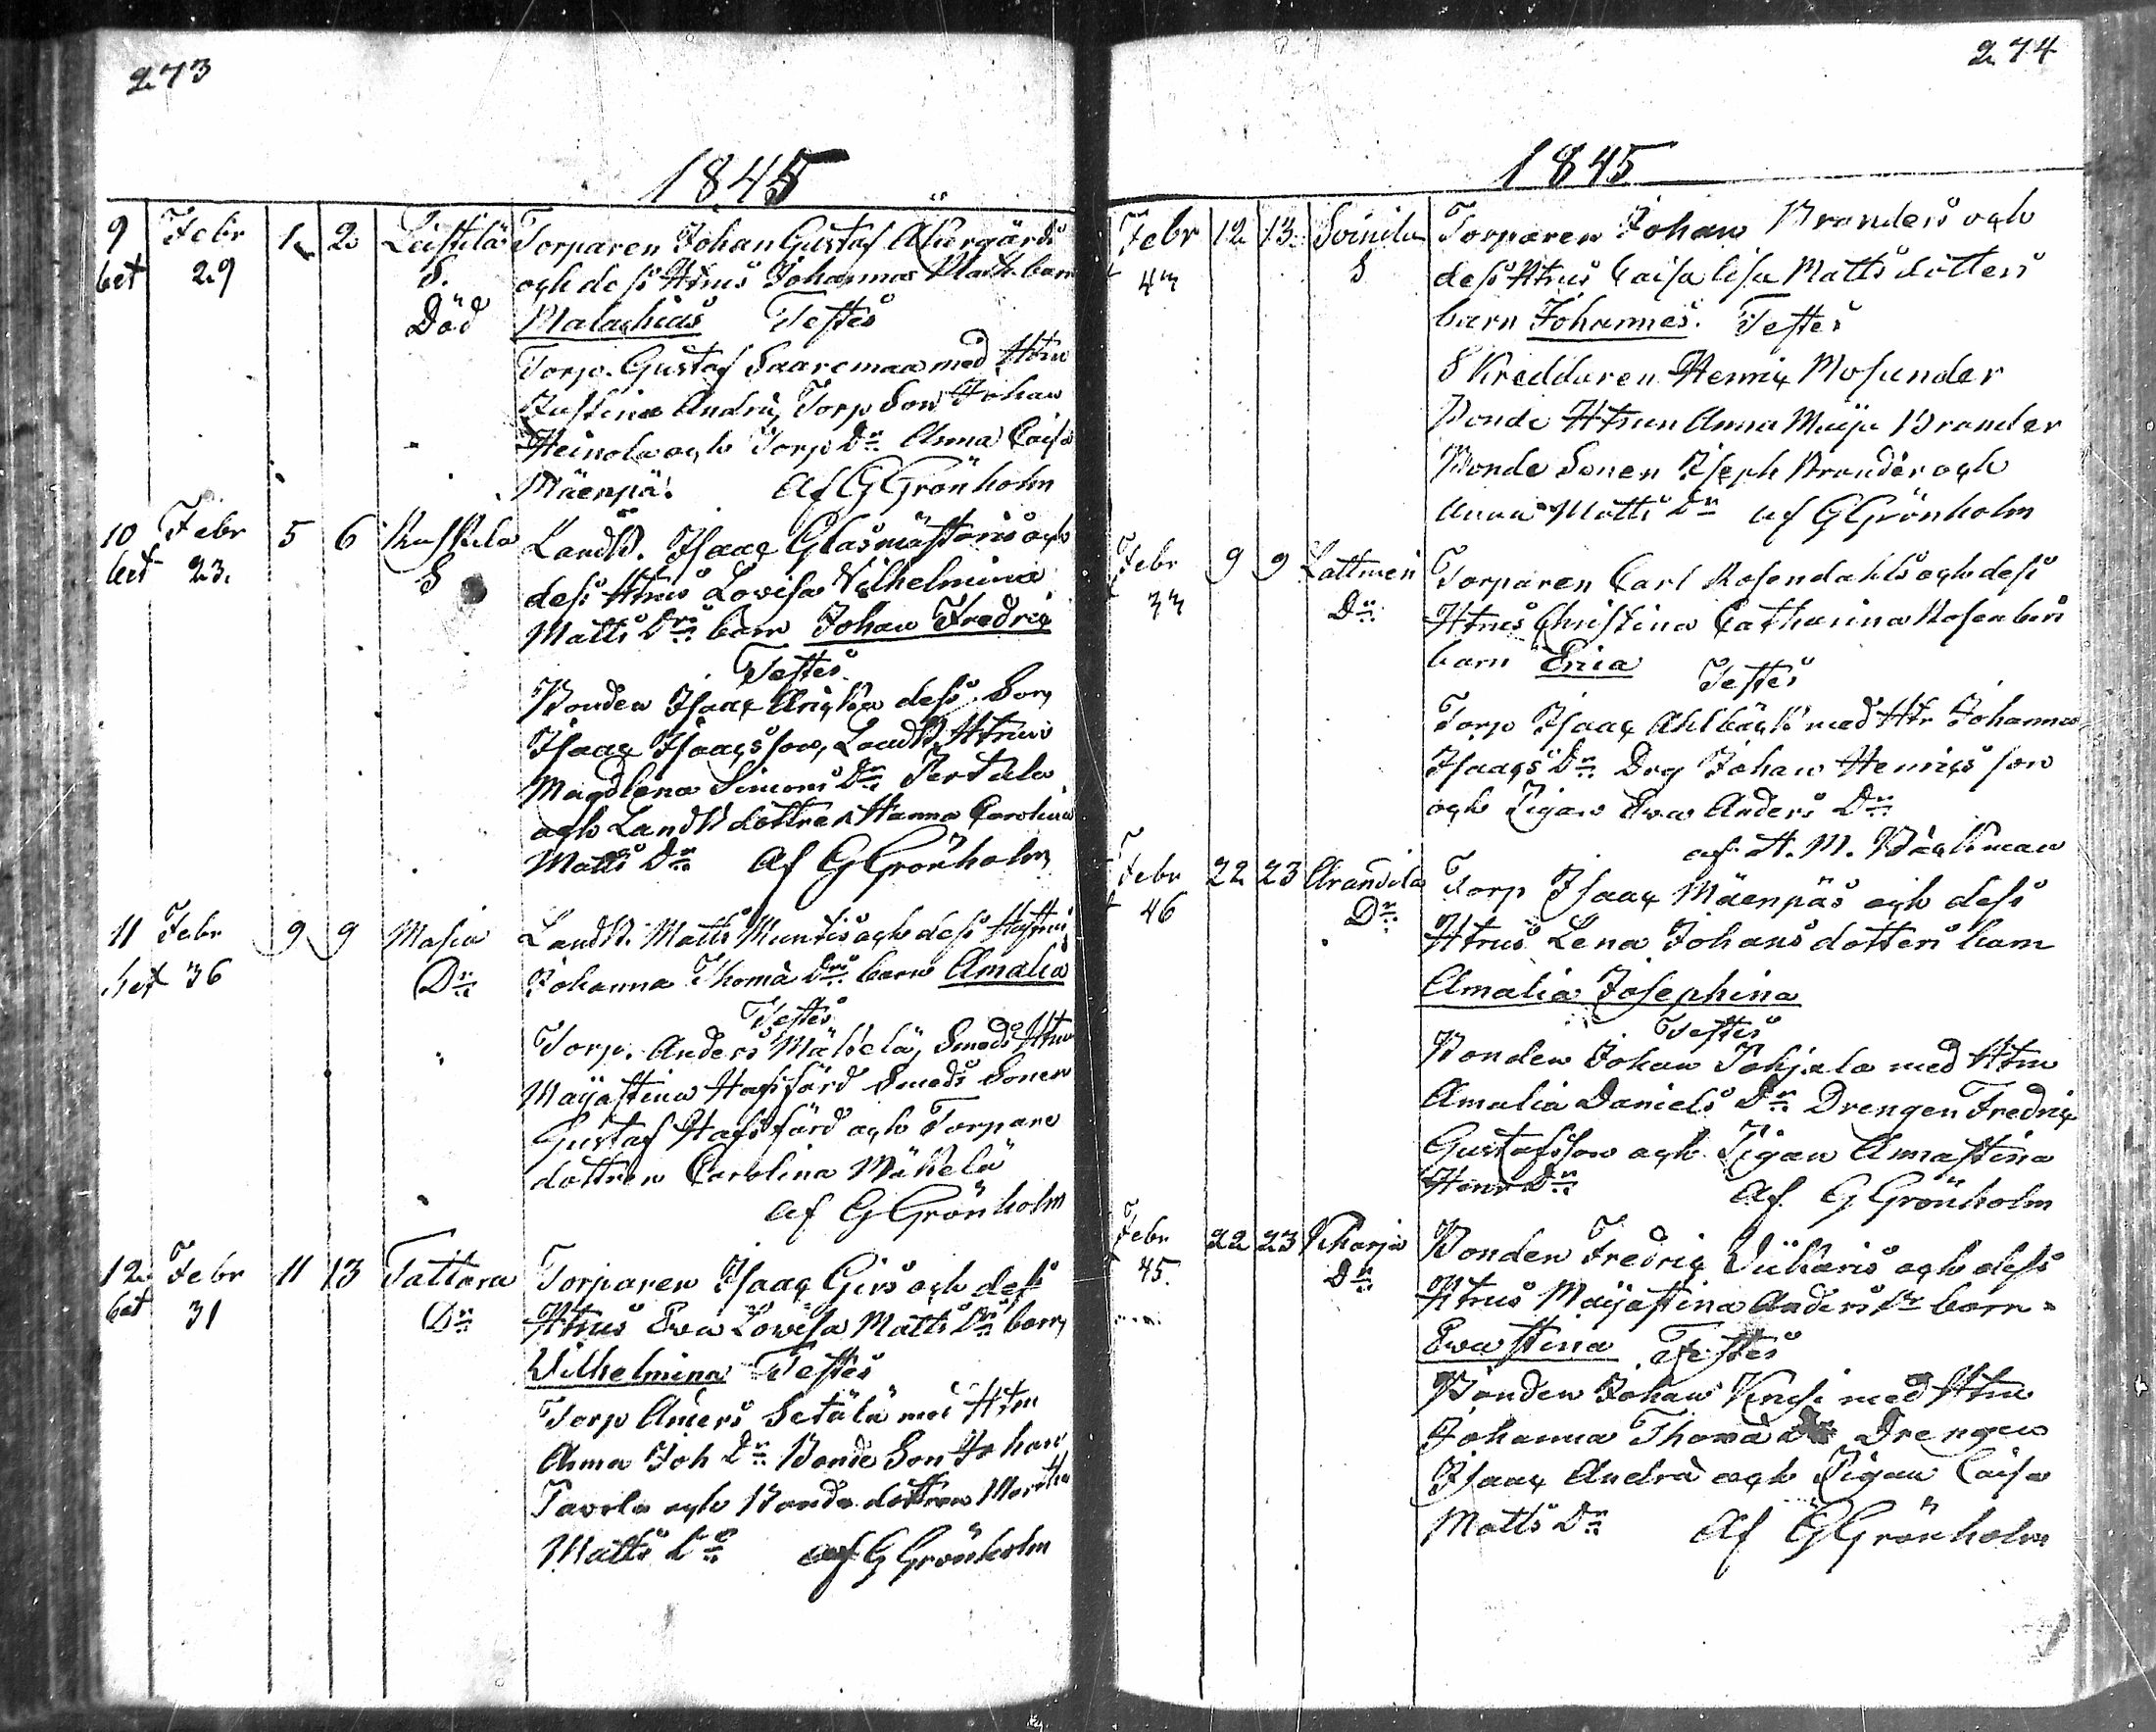 273
1845
9 Febr 1 2 Leistilä Torparen Johan Gustaf Åkergårds
bet 29 S. och dess Hrus Johannas Matts barn
Död Malachias Testes
Torp. Gustaf Saaremaa med Hru
Justina Andrä, Torp Son Johan
Heinola och Torp Dr Anna Caisa
Mäenpä. Af G Grönholm
10 Febr 5 6 Landb. Isaac Glasmästaris och
bet 23. S dess Hrus Lovisa Vilhelmina
Matts Drs barn Johan Fredric
Testes
Bonden Isaac dess Son
Isaac Isaacsson, Landb Hrun
Magdlena Simons Dr Pertula
och Landb dottren Hanna Carolina
Matts Dr Af G Grönholm
11 Febr 9 9 Masia Landb. Matts och dess Hustrus
bet 36 Dr Johanna Thoma Drs barn Amalia
Testes
Torp. Anders Mäkelä, Smeds Hru
Majastina Hafsfärd Smeds Sonen
Gustaf Hafsfärd och Torpare
dottren Carolina Mäkelä
af G Grönholm
12 Febr 11 13 Tattara Torparen Isaac Girs och dess
bet 31 Dr Hrus Eva Lovisa Matts Drs barn
Wilhelmina Testes
Torp Anders Setälä med Hru
Anna Joh Dr Bonde Son Johan
Pavola och Bonde dottren
Matts Dr af G Grönholm
274
1845
Febr 12 13 Soinila Torparen Johan Branders och
S dess Hrus Caisa Lisa Matts dotters
barn Johannes. Testes
Skreddaren Henric Mosunder
Bonde Hrun Anna Maja Brander
Bonde Sonen Iseph Brander och
Anna Matts Dr af G Grönholm
Febr 9 9 Lattmen Torparen Carl Rosendahls och dess
33 Dr Hrus Christina Catharina Rosenbers
barn Erica Testes
Torp Isaac Ahlbäck med Hr Johanna
Isaacs Dr Drg Johan Henrics son
och Pigan Eva Anders Dr
af A. M. Bäckman
Febr 22 23 Arandila Torp Isaac Mäenpäs och dess
46 Dr Hrus Lena Johans dotters barn
Amalia Josephina
Testes
Bonden Johan Pohjala med Hru
Amalia Daniels Dr Drengen Fredric
Gustafsson och Pigan Annastina
Henr Dr Af G Grönholm
Febr 22 23 Kharja Bonden Fredric Vikaris och dess
45. Dr Hrus Majastina Anders Dr barn
Evastina Testes
Bonden Johan med Hru
Johanna Thoma Dr Drengen
Isaac Andra och Pigan Caisa
Matts Dr Af G Grönholm